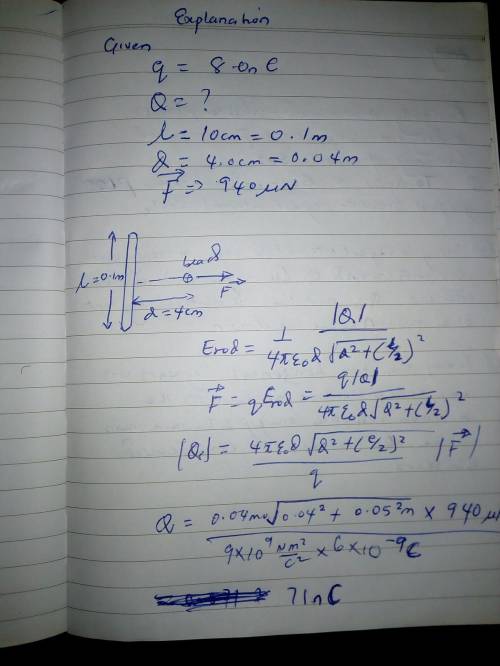 Explanation
Given
q = 8.0n C
Q = ?
l = 10cm = 0.1m
d = 4.0cm = 0.04m
F⃗ => 940 μN
l = 0.1m
bead
F⃗
d = 4cm
Erod = 1/4πε₀d |Q|/√d² + (l/2)²
F⃗ = qErod = q|Q|/4πε₀d√d² + (l/2)²
|Q| = 4πε₀d √d² + (l/2)²/q |F⃗|
Q = 0.04m √0.04² + 0.05² m × 940 μ/9×10⁹ Nm²/C² × 6 × 10⁻⁹C
71nC